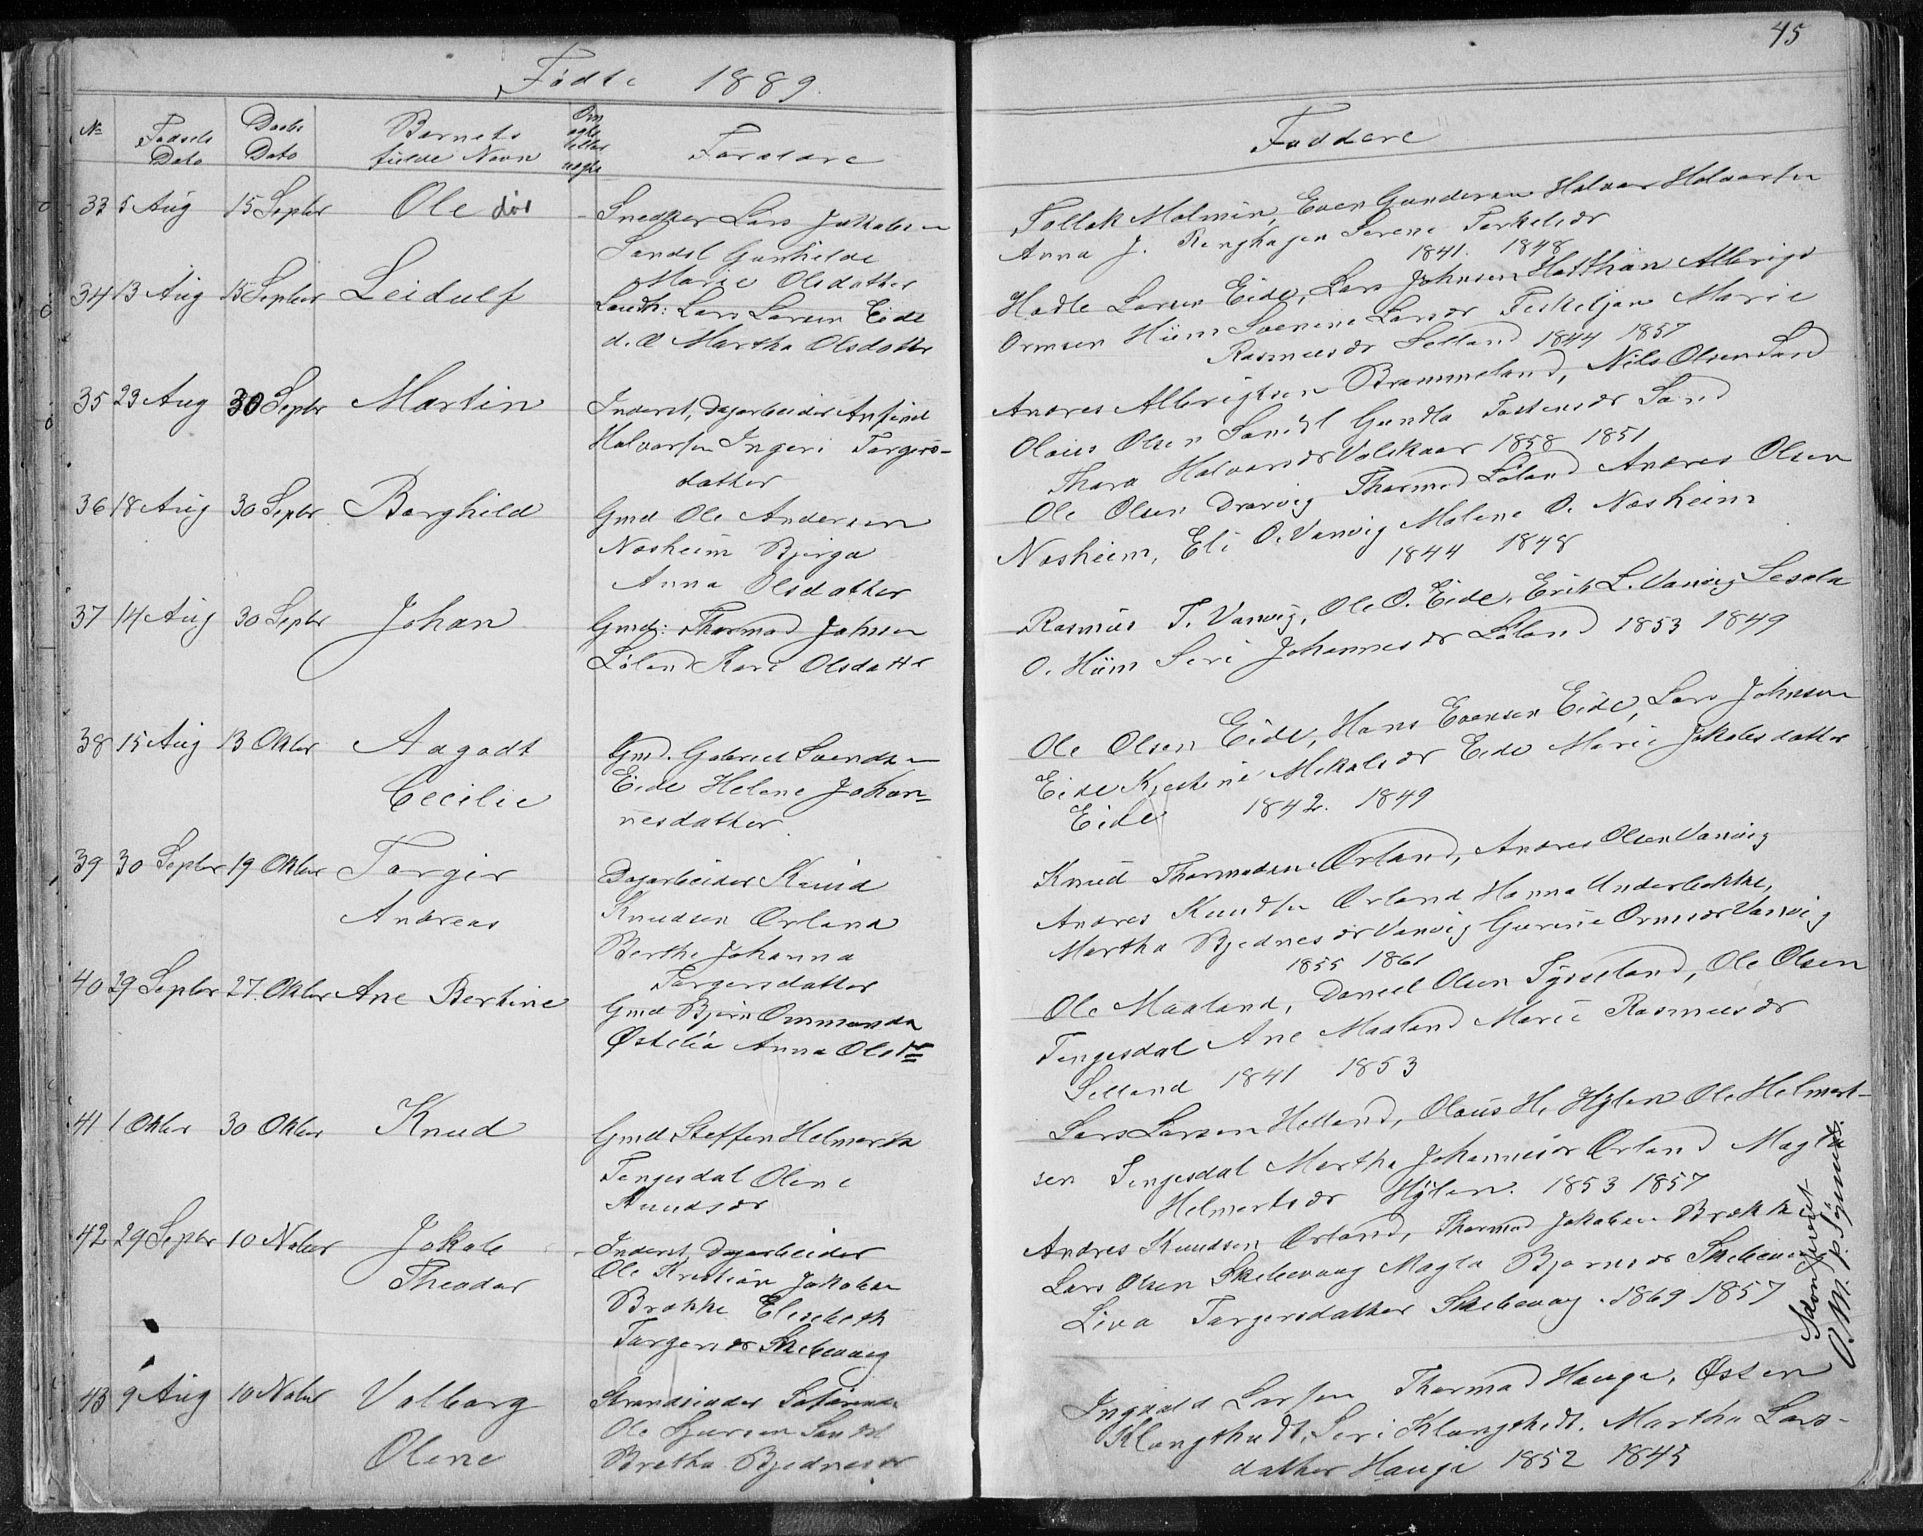 45
Fødte 1889.
No Fødsels Dato Daabs Dato Barnets fulde Navn Forældre
Faddere
33 5 Aug 15 Septbr Ole død
Snedker Lars Jakobsen
Sandsl Gunhilde
Marie Olsdatter
Tollak Malmin, Even Gundersen Halvar Halvorsen
Anna J. Ringhagen Serene Torkelsdr
1841. 1848
34 13 Aug 15 Septbr Leidulf
Landh: Lars Larsen Eide
d. O Martha Olsdatter
Hadle Larsen Eide, Lars Johnsen Albrigt
Ormsen Hiim Sverine Larsdr Marie
Rasmusdr Selland 1844 1857
35 23 Aug 30 Septbr Martin
Inderst, Dagarbeider Anfind
Halvorsen Ingeri Torgers-
datter
Andres Albrigtsen Brommeland, Nils Olsen Sand
Olaus Olsen Sandsl Gundla Tostensdr Sand
Thora Halvorsdr Valskaar 1858 1851
36 18 Aug 30 Septbr Borghild
Gmd Ole Andersen
Næsheim Bjerga
Anna Olsdatter
Ole Olsen Drarvig Thormod Løland Andres Olsen
Næsheim, Eli O. Vanvig Malene O. Næsheim
1844 1848
37 14 Aug 30 Septbr Johan
Gmd: Thormod Johnsen
Løland Kari Olsdatter
Rasmus T. Vanvig, Ole O. Eide, Erik L. Vanvig Sesela
O. Hiim Seri Johannesdr Løland 1853 1849
38 15 Aug 13 Oktbr Aagodt
Cecilie
Gmd. Gabriel Svendsen
Eide Helene Johan-
nesdatter
Ole Olsen Eide, Hans Evensen Eide, Lars Johnsen
Eide Kjestine Mikalsdr Eide Marie Jakobsdatter
Eide 1842. 1849
39 30 Septbr 19 Oktbr Torger
Andreas
Dagarbeider Knud
Knudsen Ørland
Berthe Johanna
Torgersdatter
Knud Thormodsen Ørland, Andres Olsen Vanvig
Andres Knudsen Ørland Hanna Underbakke,
Martha Bjednesdr Vanvig Gurine Ormsdr Vanvig
1855 1861
40 29 Septbr 27. Oktbr Ane Bertine
Gmd Bjørn Ommundsen
Østelia Anna Olsdr
Ole Maaland, Daniel Olsen Tysseland, Ole Olsen
Tengesdal Ane Maaland Marie Rasmusdr
Selland 1841 1853
41 1 Oktbr 30 Oktbr Knud
Gmd Steffen Helmerts
Tengesdal Olene
Knudsdr
Lars Larsen Helland, Olaus H. Hylen Ole Helmert-
sen Tengesdal Martha Johannesdr Ørland Magla
Helmertsdr Hylen. 1853 1857
42 29 Septbr 10 Novbr Jakob
Theodor
Inderst, Dagarbeider
Ole Kristian Jakobsen
Brække Elisebeth
Torgersdr Skibevaag
Andres Knudsen Ørland, Thormod Jakobsen Brække
Lars Olsen Skibevaag Magla Bjørnsdr Skibevaag
Liva Torgersdatter Skibevaag 1869 1857
43 9 Aug 10 Novbr Valborg
Olene
Strandsidder
Ole Sandsl
Bretha Bjednesdr
Ingvald Larsen Thormod Hauge, Østen
Klungtvedt, Seri Klungtvedt. Martha Lars-
datter Hauge 1852 1845